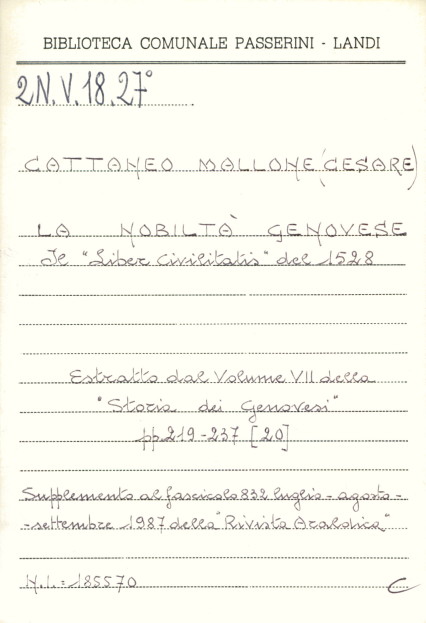 BIBLIOTECA COMUNALE PASSERINI - LANDI
2N.V.18.27°
CATTANEO MALLONE (CESARE)
LA NOBILTÀ GENOVESE
Il "Liber Civilitatis" del 1528
Estratto dal Volume VII della
"Storia dei Genovesi"
pp. 219-237 [20]
Supplemento al fascicolo 832 luglio - agosto -
- settembre 1987 della "Rivista Araldica"
N.I. = 185570 C